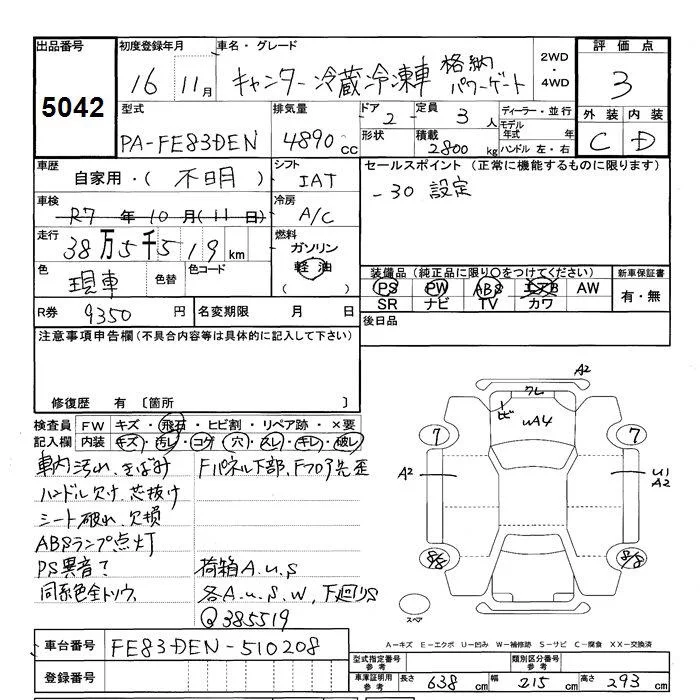 出品番号
5042
初度登録年月
16 11月
車名・グレード
キャンター冷蔵冷凍車 格納パワーゲート
2WD・4WD
評価点
3
外装 内装
C D
型式
PA-FE83DEN
排気量
4890cc
ドア
2
定員
3人
形状
積載
2800kg
ディーラー・並行
モデル年式 年
ハンドル 左・右
車歴
自家用・(不明)
シフト
IAT
セールスポイント (正常に機能するものに限ります)
-30 設定
車検
R7年10月(11日)
冷房
A/C
走行
38万5千519km
燃料
ガソリン
軽油
色
現車
色替
色コード
装備品(純正品に限り○をつけてください)
PS PW ABS エアB AW
SR ナビ TV カワ
新車保証書
有・無
R券 9350円
名変期限 月 日
後日品
注意事項申告欄(不具合内容等は具体的に記入して下さい)
修復歴 有 〔箇所
検査員記入欄
FW キズ・飛石・ヒビ割・リペア跡・×要
内装 キズ・汚レ・コゲ・穴・スレ・キレ・破レ
車内汚れ、きばみ
Fパネル下部、Fフロア先歪
ハンドル欠け、芯抜け
シート破れ、欠損
ABSランプ点灯
PS異音?
荷箱A.U.S
同系色全トソウ
各A.U.S.W、下回りS
Q385519
A2
クレ
ヒビ
WA4
7
7
A2
U1
A2
8/8
8/8
スペア
A-キズ E-エクボ U-凹み W-補修跡 S-サビ C-腐食 XX-交換済
車台番号
FE83DEN-510208
登録番号
型式指定番号参考
類別区分番号参考
車庫証明用参考
長さ 638cm 幅 215cm 高さ 293cm